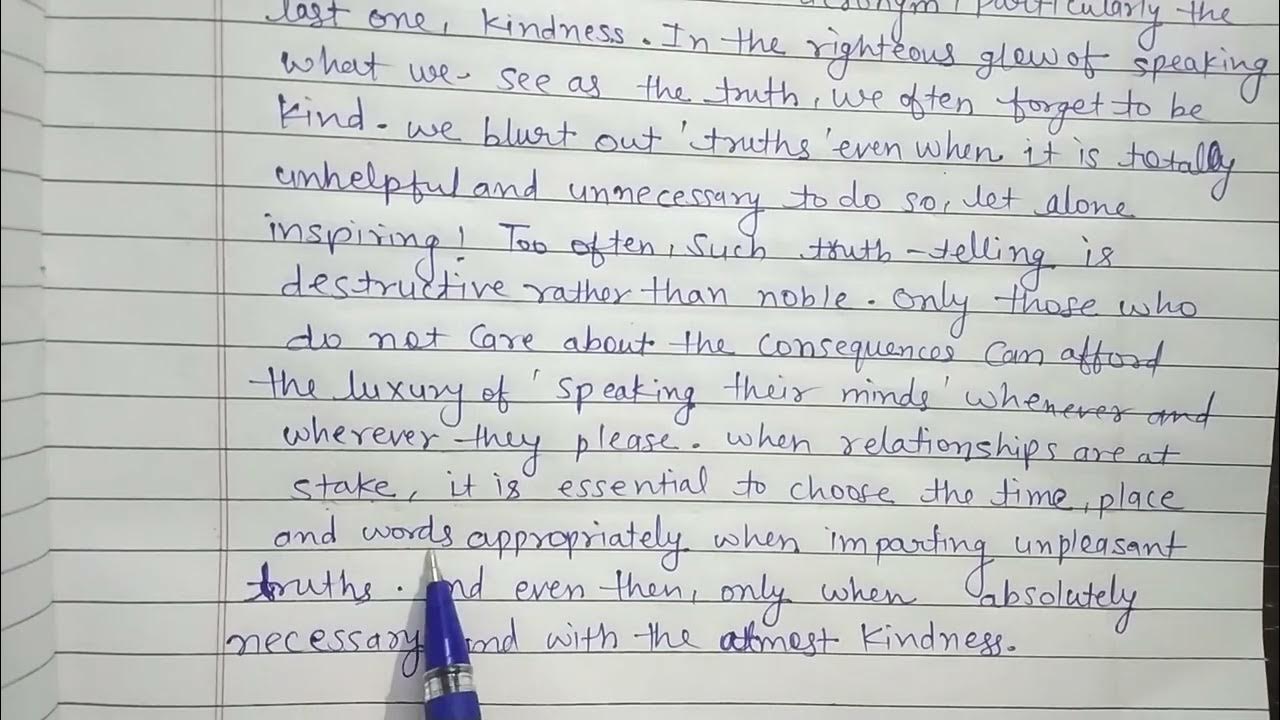 acronym, particularly the
last one, kindness. In the righteous glow of speaking
what we see as the truth, we often forget to be
kind. we blurt out 'truths' even when it is totally
unhelpful and unnecessary to do so, let alone
inspiring! Too often, such truth-telling is
destructive rather than noble. only those who
do not care about the consequences can afford
the luxury of 'speaking their minds' whenever and
wherever they please. when relationships are at
stake, it is essential to choose the time, place
and words appropriately when imparting unpleasant
truths. And even then, only when absolutely
necessary and with the utmost kindness.